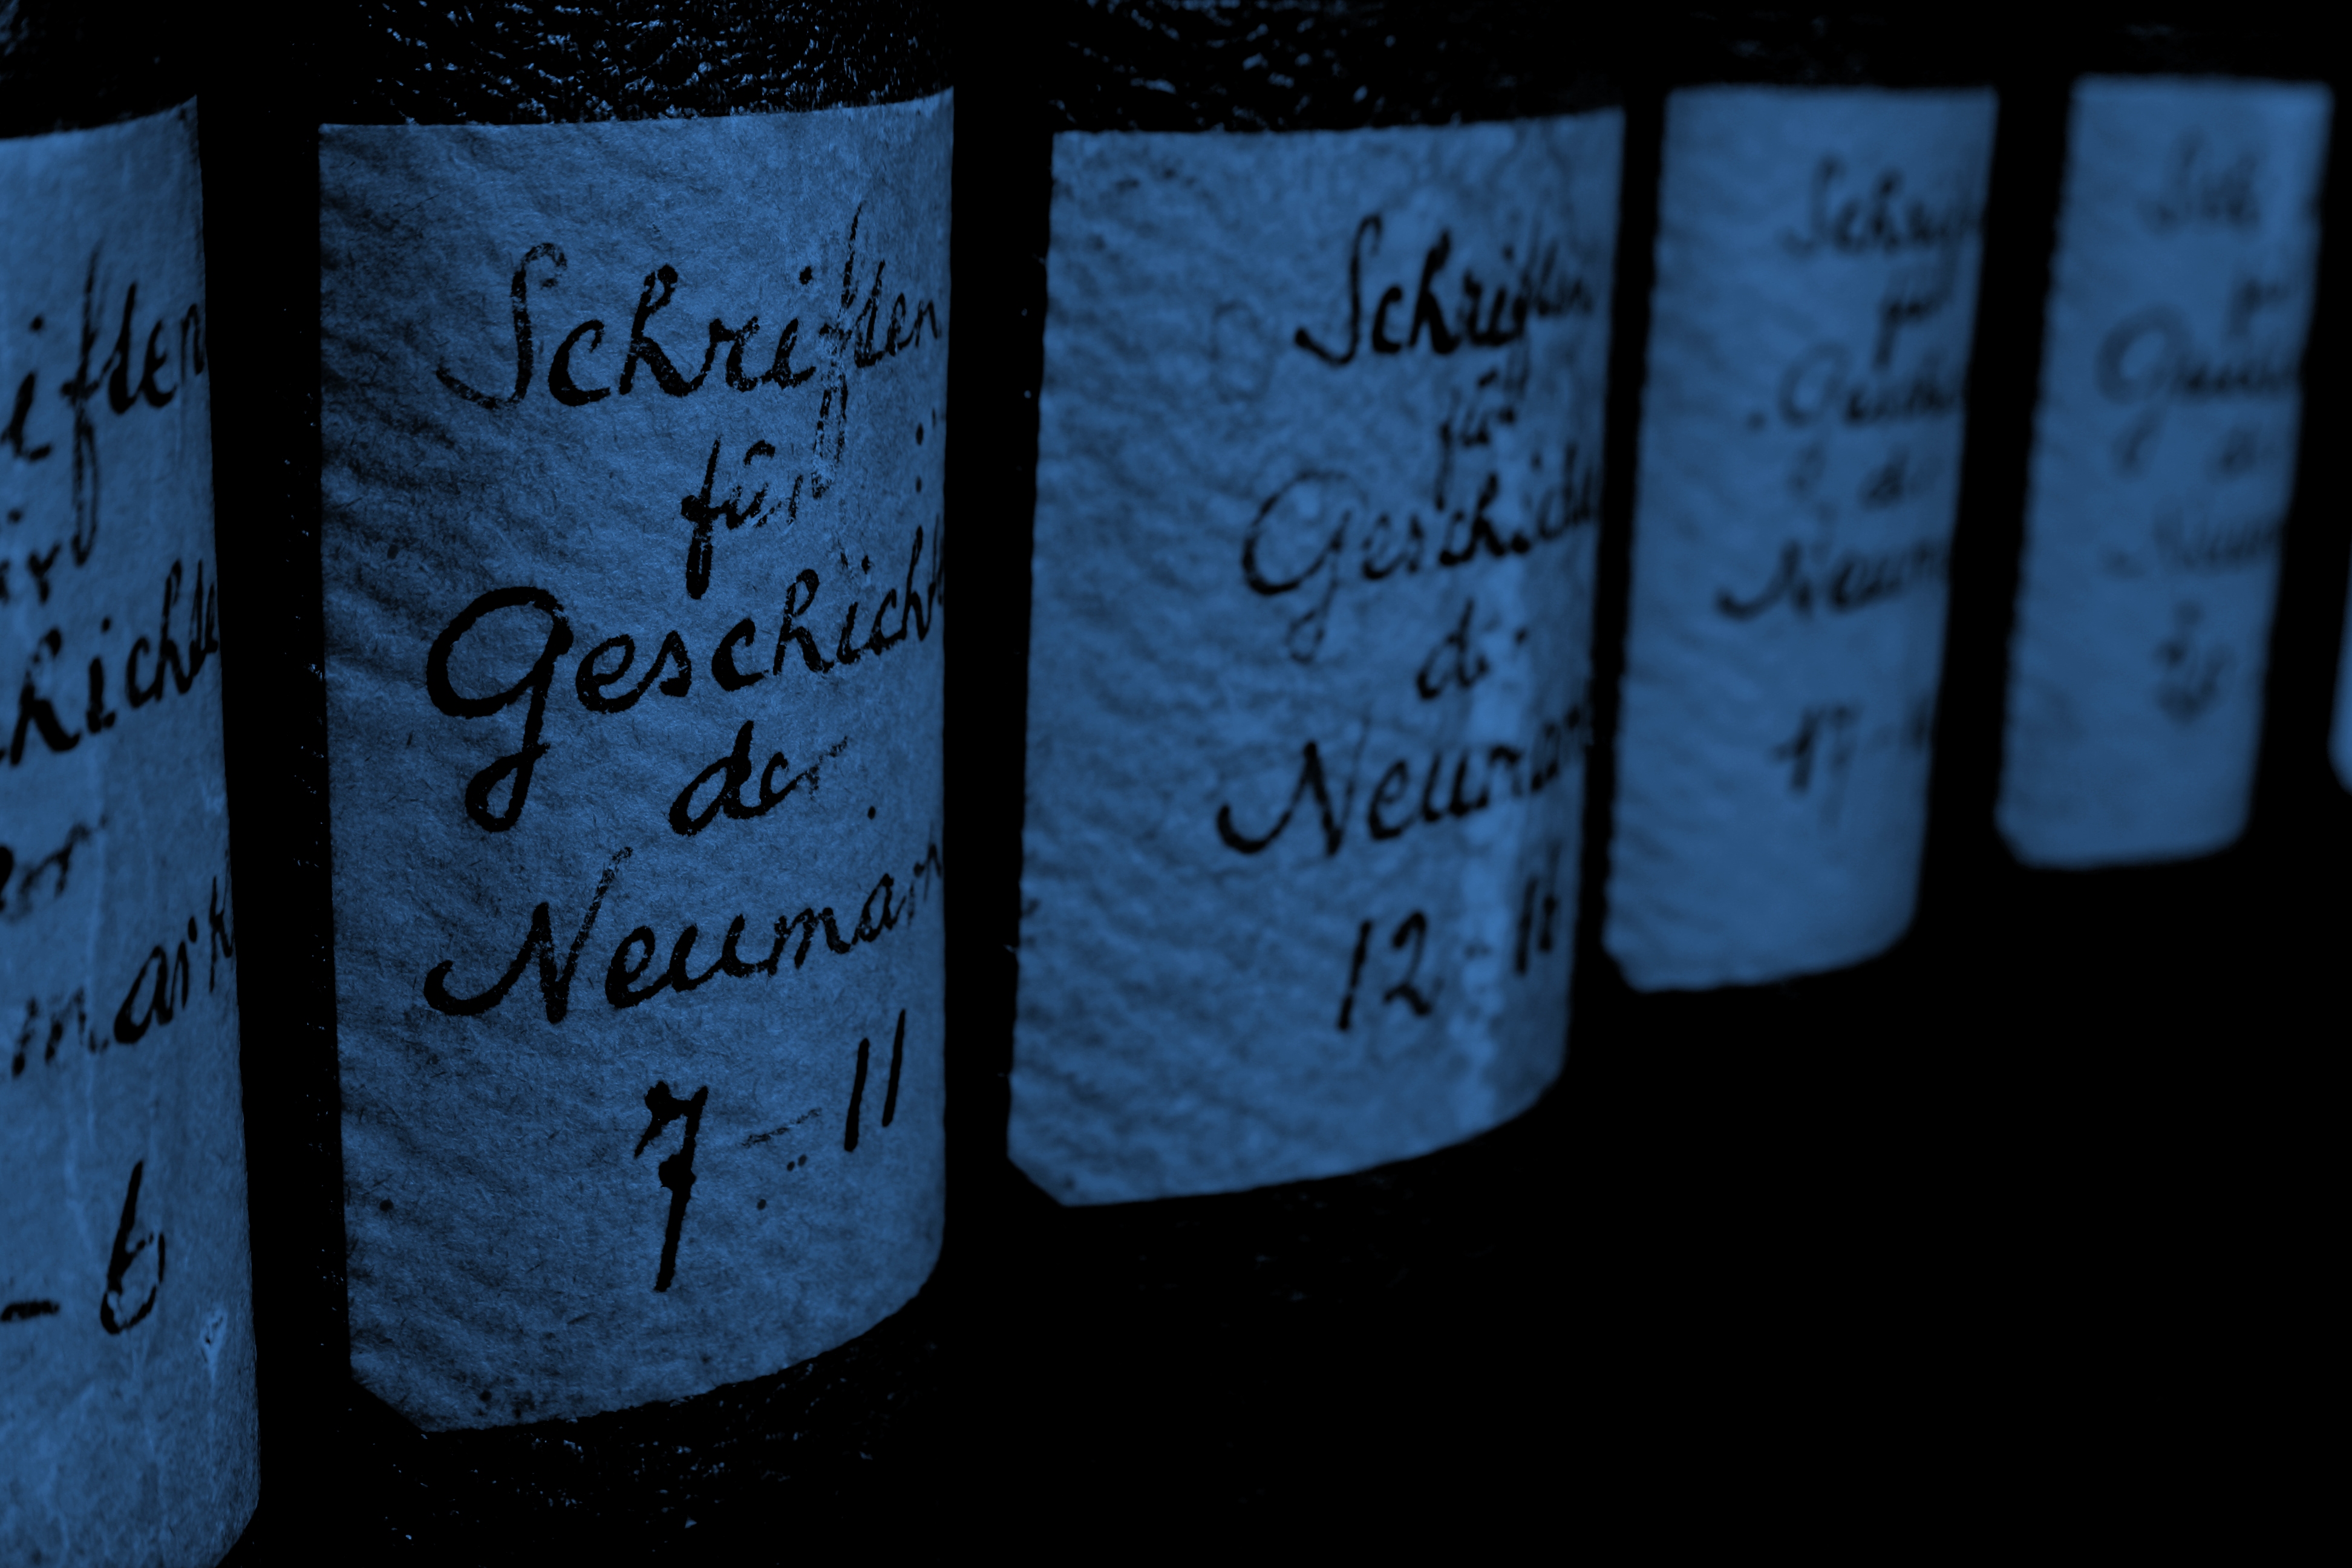 iften
hichte
er
mark
- 6
Schriften
für
Geschicht
der
Neumar
7 - 11
Schriften
für
Geschichte
der
Neumar
12 -
Schrif
für
Neum
17 -